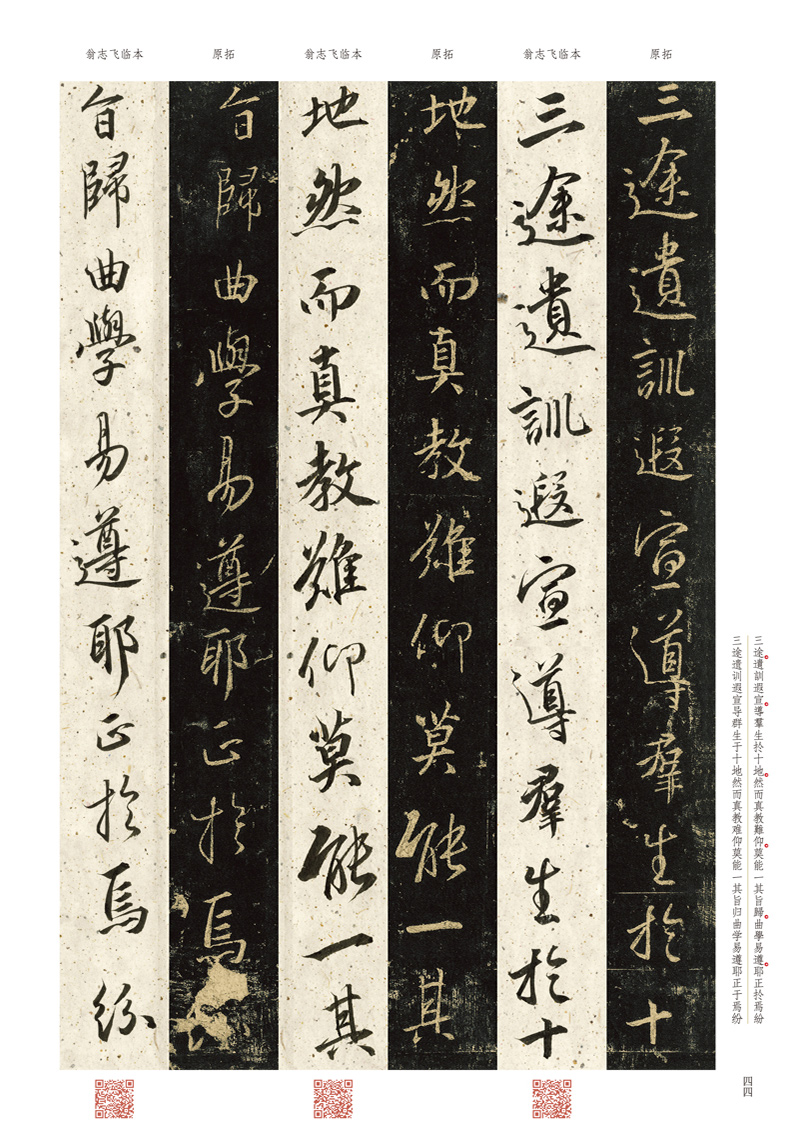 原拓
翁志飞临本
原拓
翁志飞临本
原拓
翁志飞临本
三途遺訓遐宣導羣生於十
三途遺訓遐宣導羣生於十
地然而真教難仰莫能一其
地然而真教難仰莫能一其
旨歸曲學易遵耶正於焉
旨歸曲學易遵耶正於焉紛
三途遺訓遐宣導羣生於十地然而真教難仰莫能一其旨歸曲學易遵耶正於焉紛
三途遗训遐宣导群生于十地然而真教难仰莫能一其旨归曲学易遵耶正于焉纷
四四